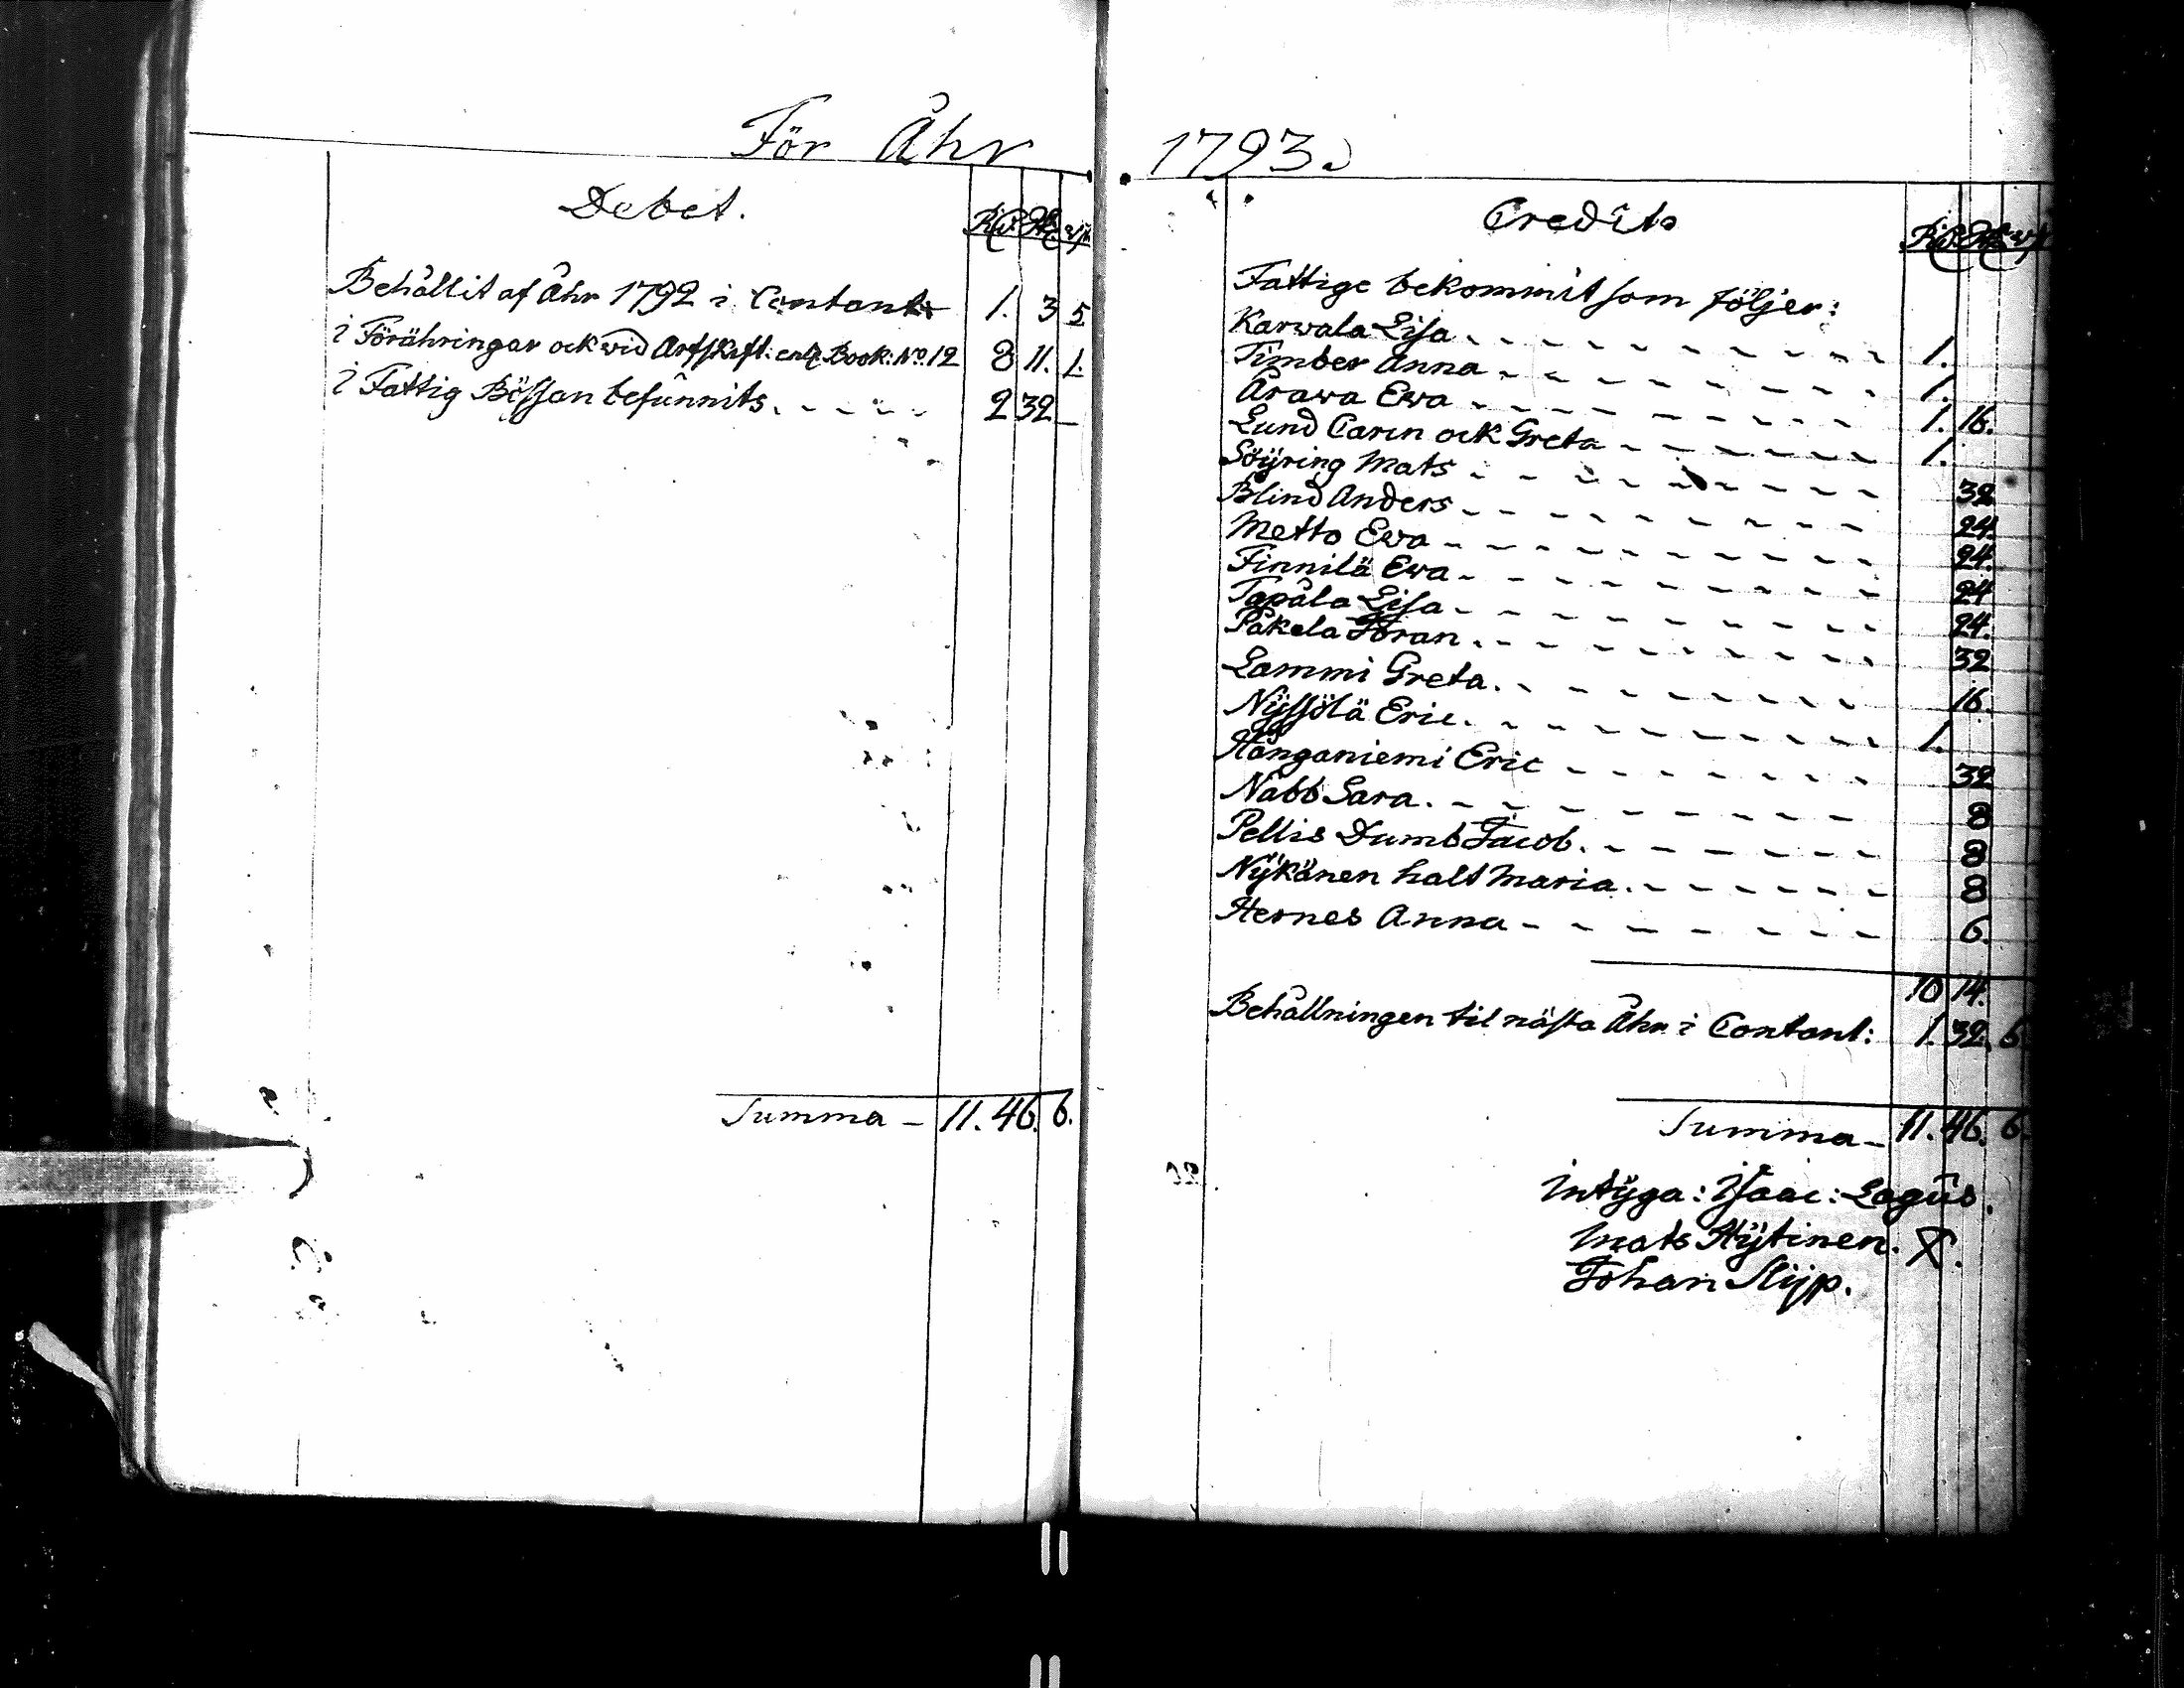 För Åhr 1793.
Debet. Rd. sk. rst
Behållit af Åhr 1792 i Contant 1. 3 5
i Förähringar ock wid Arfskift: enl. Book: No. 12 8 11. 1.
i Fattig Bössan befunnits. 2 32 —
Summa — 11. 46. 6.
Credit Rd. sk. rst
Fattige bekommit som följer:
Karwala Lisa 1.
Timber Anna 1.
Årawa Ewa 1. 16.
Lund Carin ock Greta 1.
Söÿring Mats 32
Blind Anders 24.
Metto Ewa 24.
Finnilä Ewa 24
Tapåla Lisa 24.
Påkela Göran 32
Lammi Greta 16.
Nÿssölä Eric 1.
Hånganiemi Eric 32
Nabb Sara 8
Pellis Dumb Jacob 8
Nÿkänen halt Maria 8
Hernes Anna 6.
10 14.
Behållningen til nästa Åhr i Contant: 1. 32. 6
Summa — 11. 46. 6.
Intÿga: Isaac: Lagus.
Mats Hÿtinen. X.
Johan Slijp.